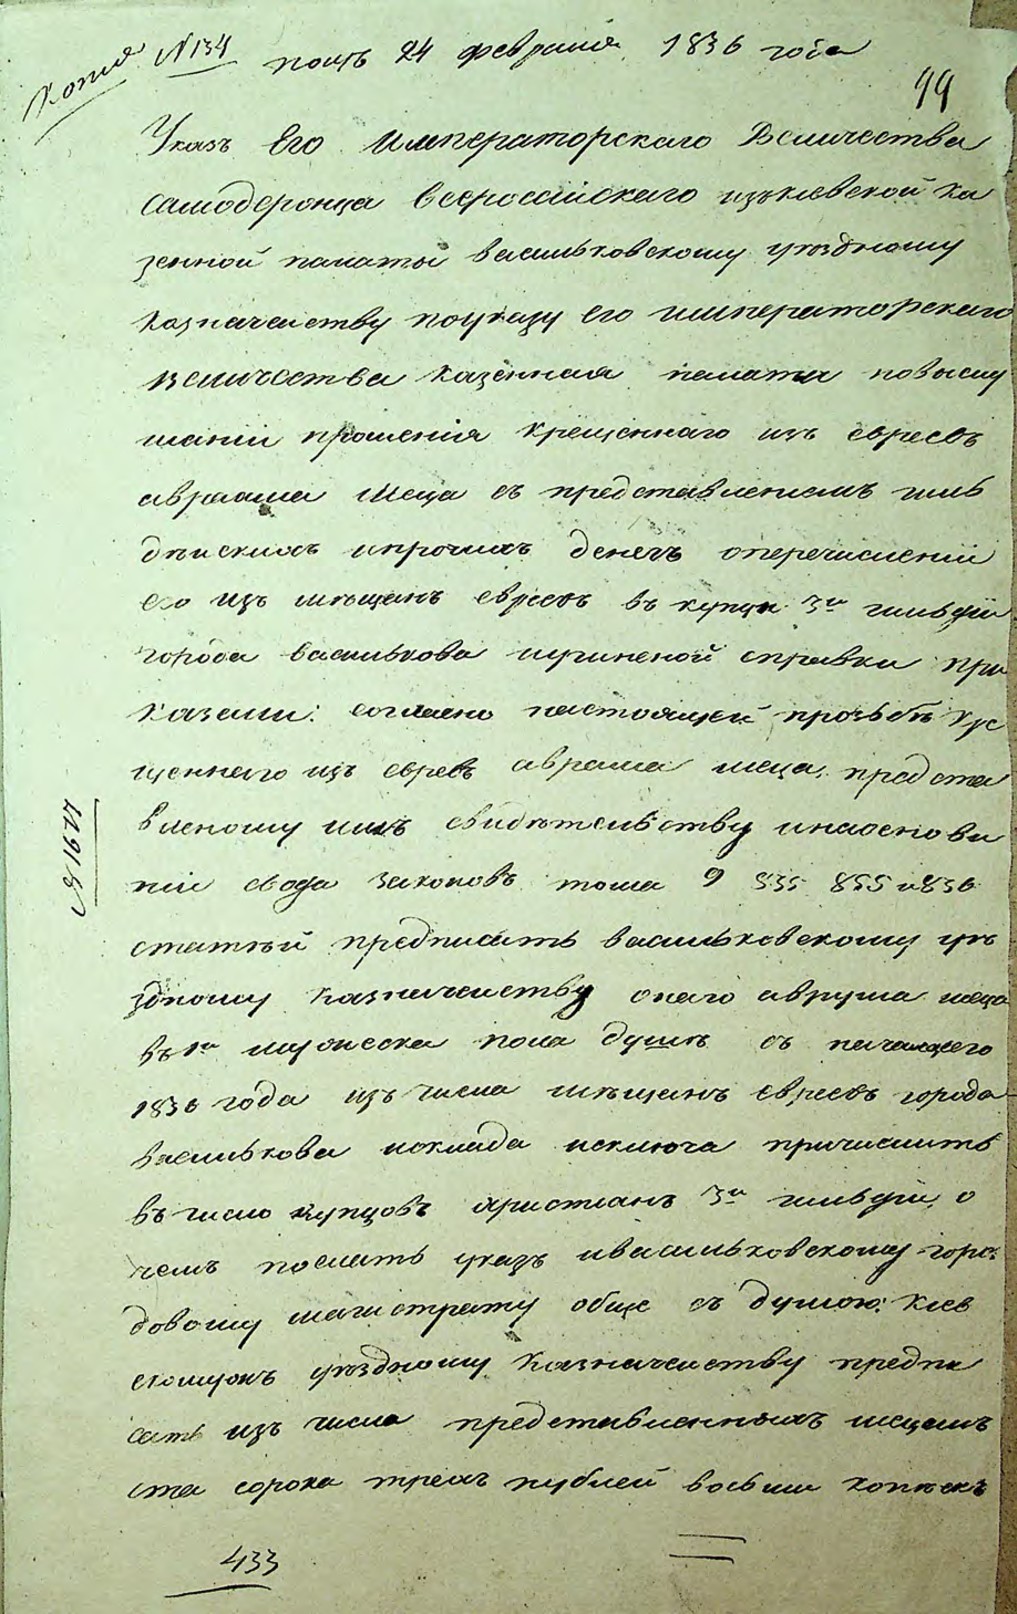 Копия № 134 полъ 24 февраля 1836 года
99
Указъ Его Императорскаго Величества
самодержца всероссійскаго изъкіевской ка
зенной палаты васильковскому уѣздному
казначейству поуказу его императорскаго
величества казенная палата повыслу
шаніи прошенія крещеннаго изъ евреевъ
авраама Меца съ представленіемъ гиль
дѣйскихъ ипрочихъ денегъ оперечисленіи
его изъ мѣщанъ евреевъ въ купцы 3й гильдіи
города василькова иучиненой справки при
казали: согласно настоящей прозьбѣ кре
щеннаго изъ евреевъ аврама меца, предста
вленому имъ свидѣтельству инаоснова
ніи свода законовъ тома 9 835 855 и 836
статьѣй предписать васильковскому уѣ
здному казначейству онаго аврума меца
въ 1й мужеска пола душѣ съ начала
1836 года изъ числа мѣщанъ евреевъ города
василькова иоклада исключа причислить
въ число купцовъ христіанъ 3й гильдіи, о
чемъ послать указъ ивасильковскому горо
довому магистрату обще съ думою: кіев
скомужъ уѣздному казначейству предпи
сать изъ числа представленныхъ мецемъ
ста сорока трехъ рублей восьми копѣекъ
№ 1677
433